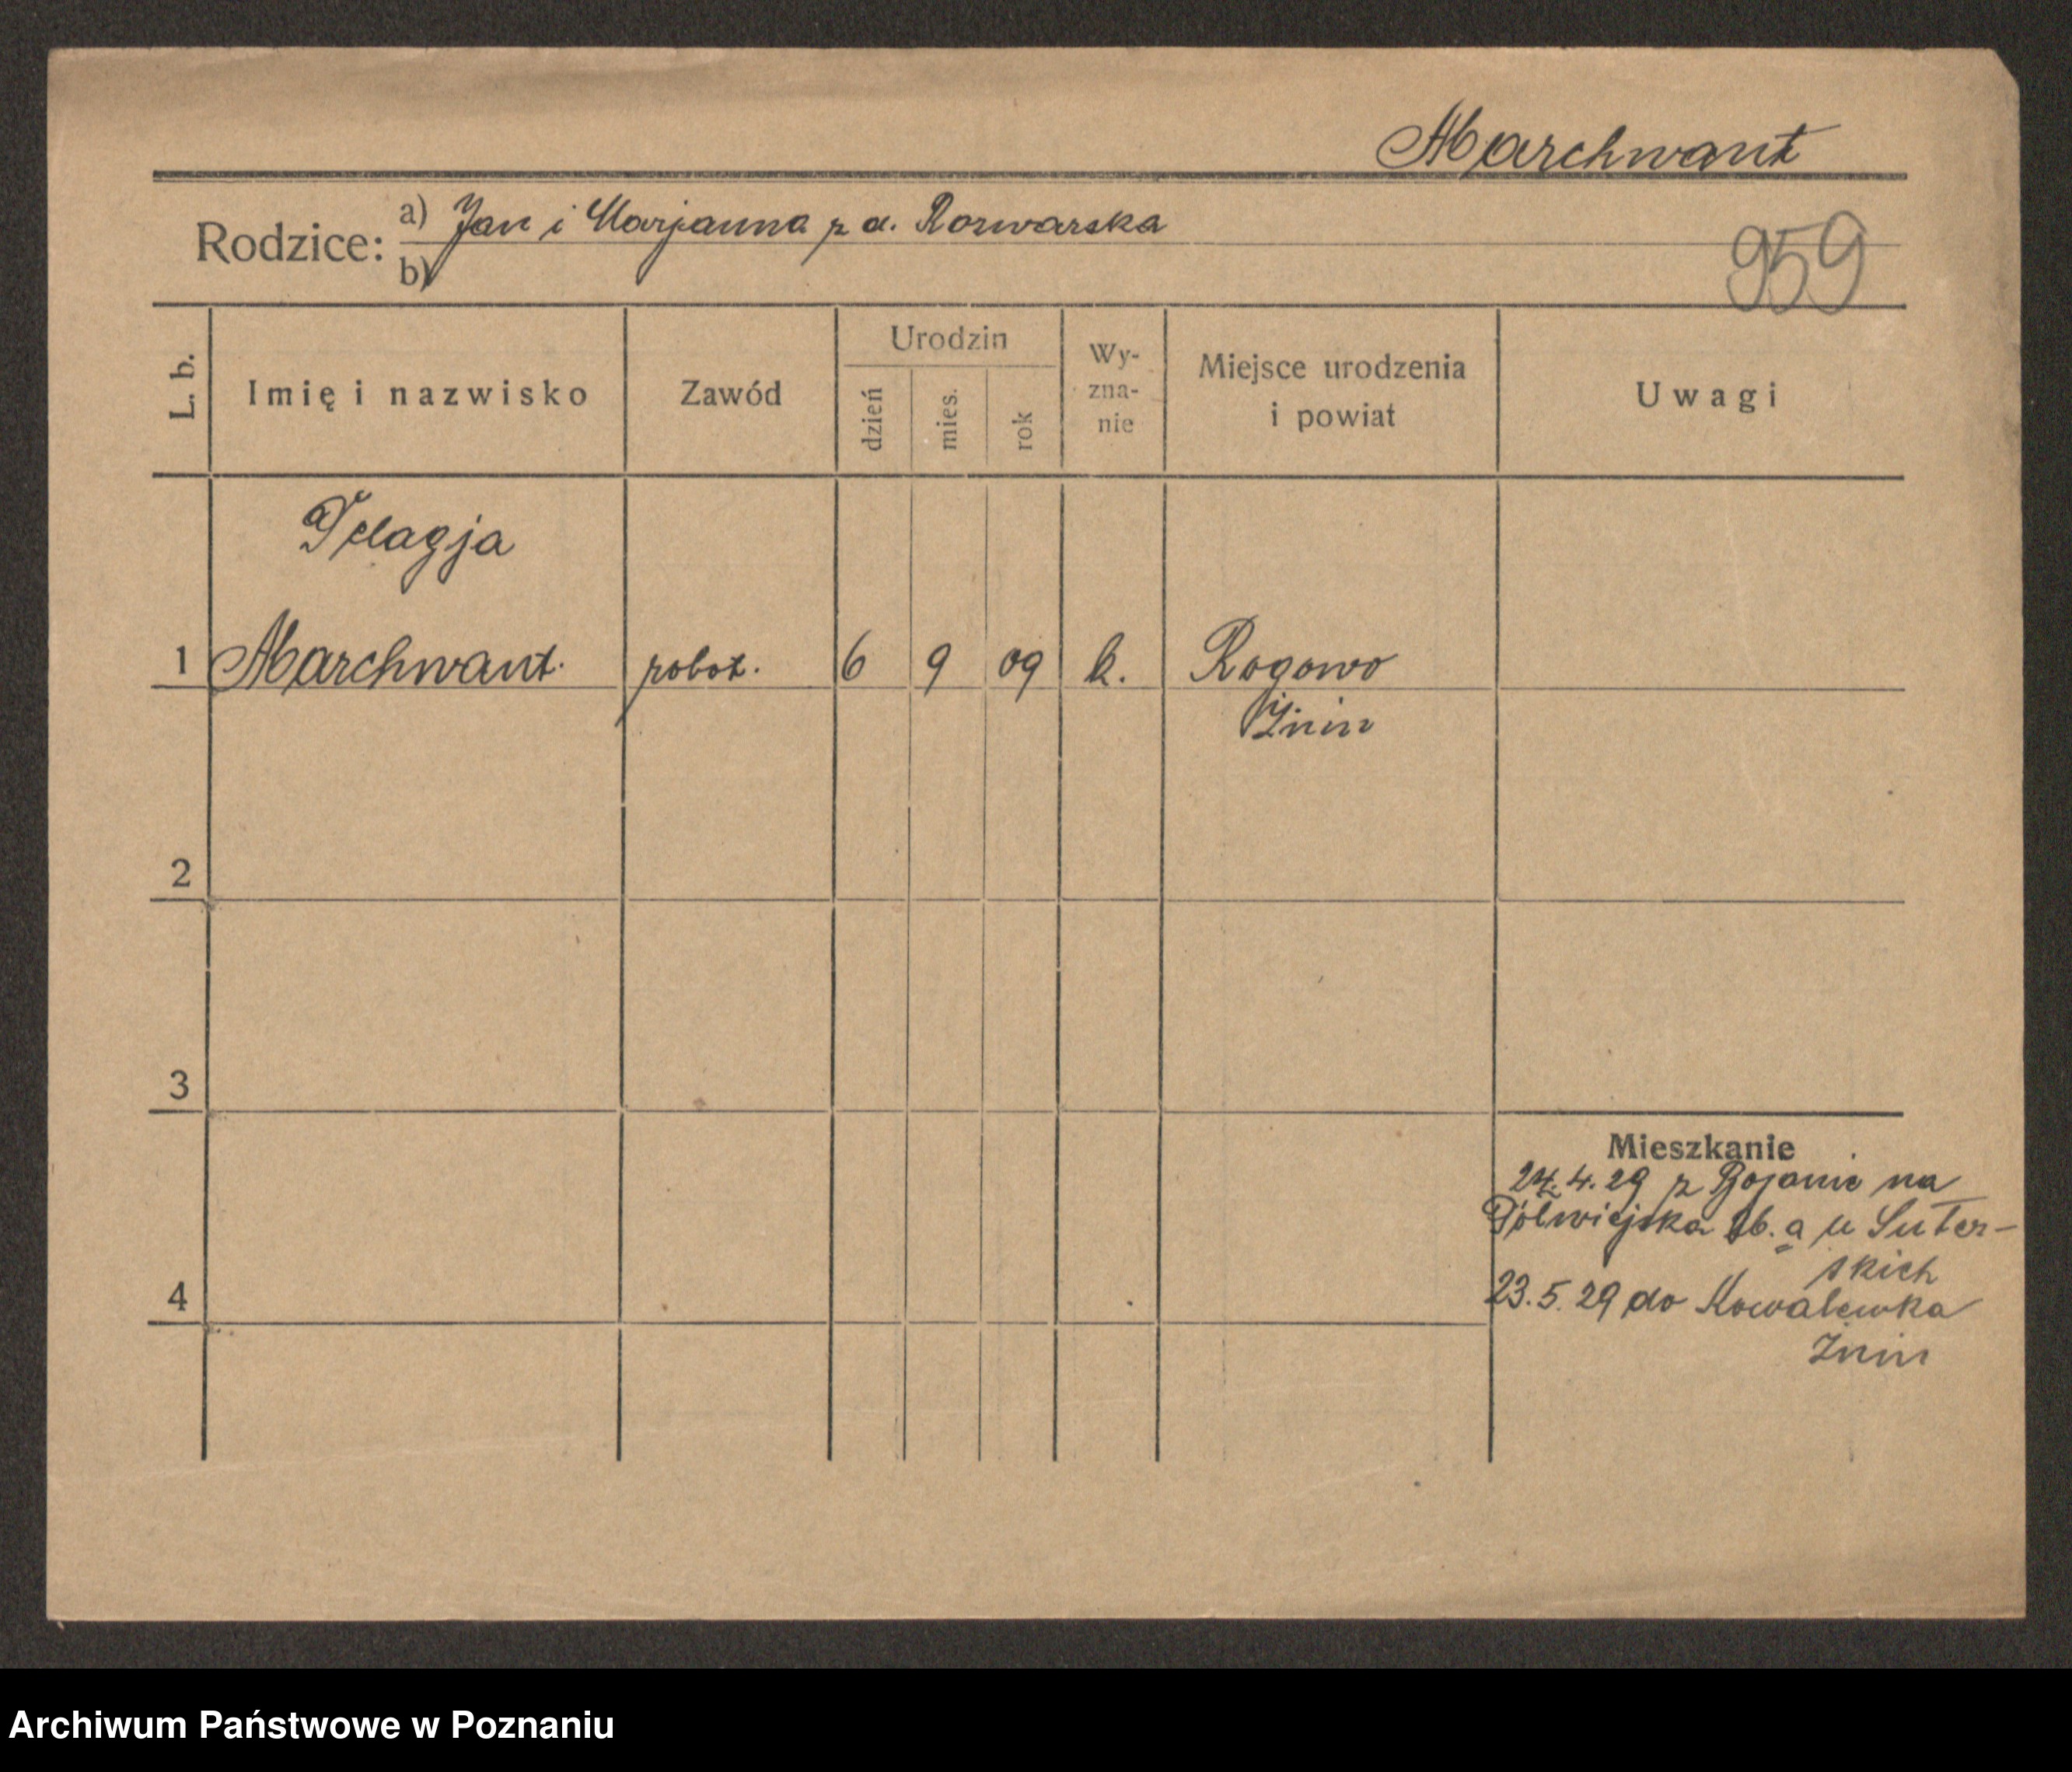 Marchwant
Rodzice: a) Jan i Marjanna z d. Rozwarska
b)
959
L. b.
Imię i nazwisko
Zawód
Urodzin
dzień
mies.
rok
Wy-
zna-
nie
Miejsce urodzenia
i powiat
Uwagi
Pelagja
1 Marchwant. robot. 6 9 09 k. Rogowo
Żnin
2
3
4
Mieszkanie
24.4.29 z Bojanic na
Półwiejska 16. a u Suter-
skich
23.5.29 do Kowalewka
Żnin
Archiwum Państwowe w Poznaniu